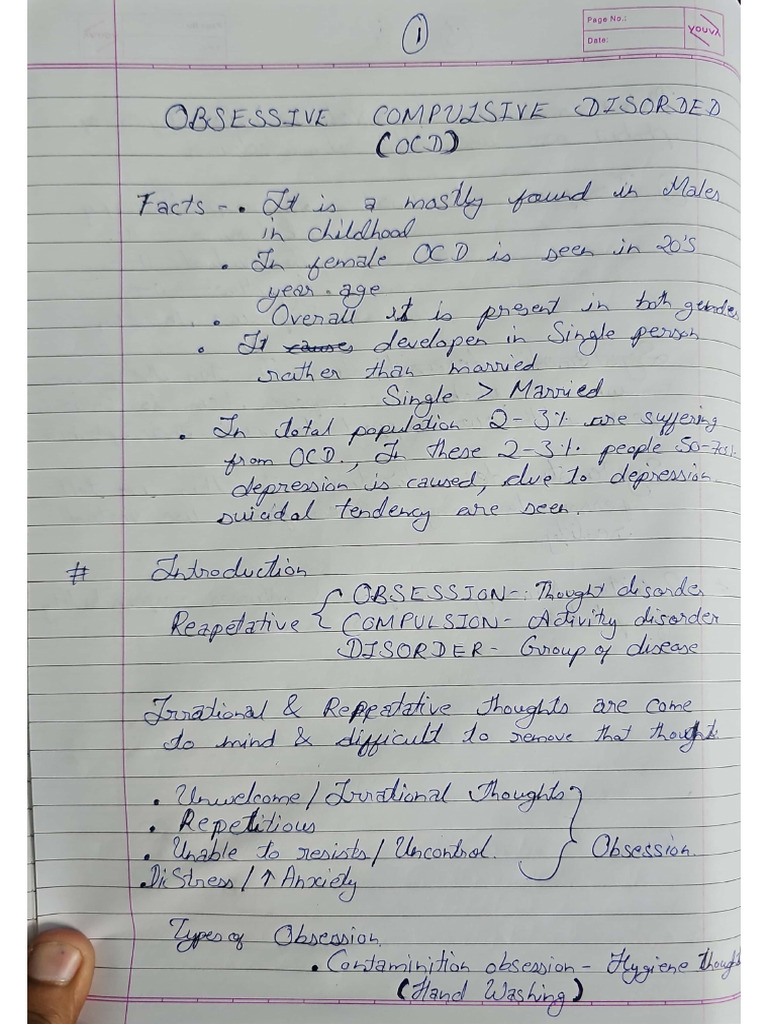 1
Page No.:
Date:
youva
OBSESSIVE COMPULSIVE DISORDED
(OCD)
Facts - • It is a mostly found in Males
in childhood
• In female OCD is seen in 20's
year age
• Overall it is present in both gender
• It causes developen in Single person
rather than married
Single > Married
• In total population 2-3% are suffering
from OCD, In these 2-3% people 50-70%
depression is caused, due to depression
suicidal tendency are seen.
# Introduction
OBSESSION-: Thought disorder
Reapetative { COMPULSION - Activity disorder
DISORDER - Group of disease
Irrational & Reppetative thoughts are come
to mind & difficult to remove that thought
• Unwelcome / Irrational Thoughts
• Repetitious
• Unable to resists / Uncontrol. } Obsession
• DiStress / ↑ Anxiety
Types of Obsession
• Contaminition obsession - Hygiene thought
(Hand Washing)